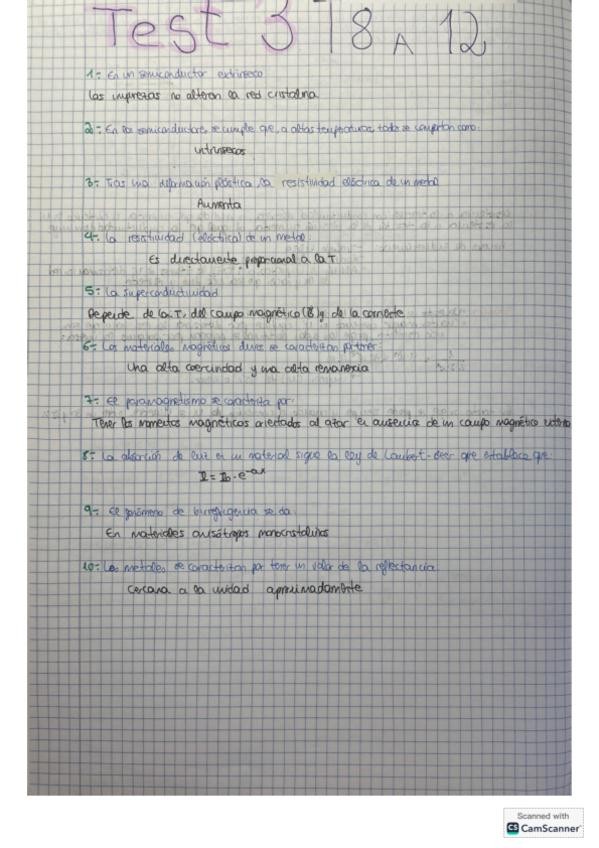 Test 3 T8 A 12
1- En un semiconductor extrínseco
Las impurezas no alteran la red cristalina
2- En los semiconductores, se cumple que, a altas temperaturas, todos se comportan como:
intrínsecos
3- Tras una deformación plástica, la resistividad eléctrica de un metal
Aumenta
4- La resistividad (eléctrica) de un metal:
Es directamente proporcional a la T.
5- La superconductividad
Depende de la T, del campo magnético (B) y de la corriente
6- Los materiales magnéticos duros se caracterizan por tener:
Una alta coercividad y una alta remanencia
7- El paramagnetismo se caracteriza por:
Tener los momentos magnéticos orientados al azar en ausencia de un campo magnético externo
8- La absorción de luz en un material sigue la ley de Lambert-Beer que establece que:
I = I₀ · e^-αx
9- El fenómeno de birrefringencia se da
En materiales anisótropos monocristalinos
10- Los metales se caracterizan por tener un valor de la reflectancia
Cercana a la unidad aproximadamente
Scanned with
CS CamScanner